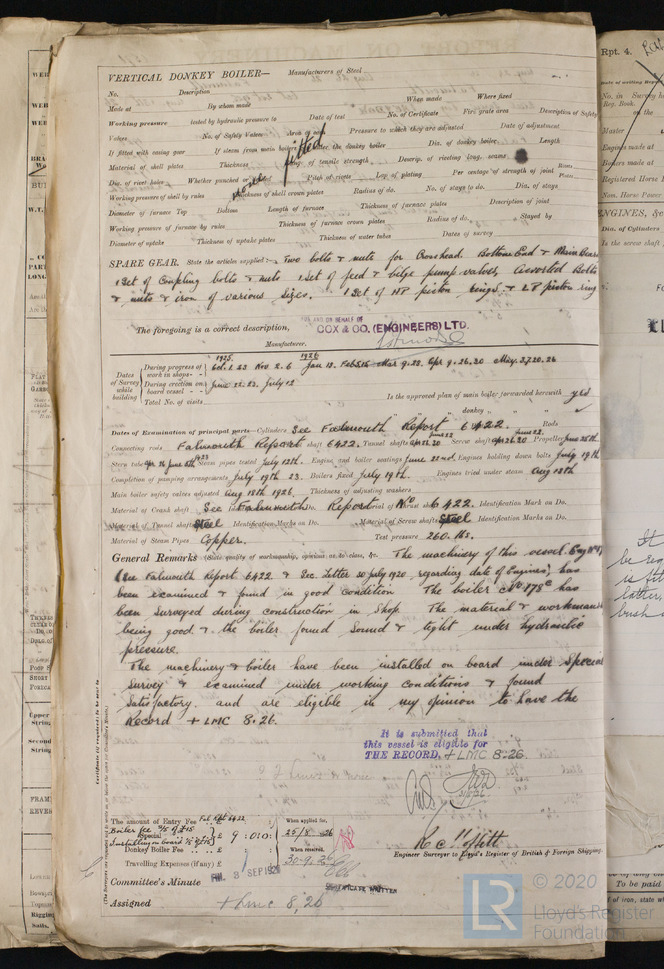 VERTICAL DONKEY BOILER— Manufacturers of Steel
No. Description
Made at By whom made When made Where fixed
Working pressure tested by hydraulic pressure to Date of test No. of Certificate Fire grate area Description of Safety
Valves No. of Safety Valves Area of each Pressure to which they are adjusted Date of adjustment
If fitted with easing gear If steam from main boilers enter the donkey boiler Dia. of donkey boiler Length
Material of shell plates Thickness Range of tensile strength Descrip. of riveting long. seams
Dia. of rivet holes Whether punched or Pitch of rivets Lap of plating Per centage of strength of joint Rivets Plates
Working pressure of shell by rules Thickness of shell crown plates Radius of do. No. of stays to do. Dia. of stays
Diameter of furnace Top Bottom Length of furnace Thickness of furnace plates Description of joint
Working pressure of furnace by rules Thickness of furnace crown plates Radius of do. Stayed by
Diameter of uptake Thickness of uptake plates Thickness of water tubes Dates of survey
SPARE GEAR. State the articles supplied:— Two bolts & nuts for Crosshead. Bottom End & Main Bear
1 Set of Coupling bolts & nuts 1 Set of feed & bilge pump valves, assorted Bolts
& nuts & iron of various sizes. 1 Set of HP piston rings & LP piston ring
The foregoing is a correct description,
FOR AND ON BEHALF OF
COX & CO. (ENGINEERS) LTD.
Manufacturer.
1925. 1926
Dates of Survey while building
During progress of work in shops - - Oct. 2. 23 Nov. 2. 6 Jan 18. Feb Mar 9.23. Apr 9.26.30 May. 3.20.26
During erection on board vessel - - - June 22.23. July 12
Total No. of visits
Is the approved plan of main boiler forwarded herewith yes
" " " donkey " " "
Dates of Examination of principal parts—Cylinders See Falmouth Report 6422. Rods
Connecting rods Falmouth Report shaft 6422. Tunnel shafts Apr 26.30 June 22 Screw shaft Apr 26.30 June 22. Propeller June 25th
Stern tube Steam pipes tested July 12th. Engine and boiler seatings June 22nd. Engines holding down bolts July 19th
Completion of pumping arrangements July 19th 23. Boilers fixed July 19th. Engines tried under steam Aug 18th
Main boiler safety valves adjusted Aug 18th 1926. Thickness of adjusting washers
Material of Crank shaft See Falmouth Report No 6422. Identification Mark on Do.
Material of Tunnel shafts Steel Identification Marks on Do. Material of Screw shafts Steel Identification Marks on Do.
Material of Steam Pipes Copper. Test pressure 260 lbs.
General Remarks (State quality of workmanship, opinions as to class, &c. The machinery of this vessel Eng No
(See Falmouth Report 6422 & Sec. Letter 30 July 1920 regarding date of Engines) has
been examined & found in good condition The boiler No 875 has
been surveyed during construction in shop. The material & workmans
being good & the boiler found sound & tight under hydraulic
pressure.
The machinery & boiler have been installed on board under special
survey & examined under working conditions & found
satisfactory and are eligible in my opinion to have the
Record + LMC 8.26.
It is submitted that
this vessel is eligible for
THE RECORD. + LMC 8.26.
The amount of Entry Fee
Boiler fee
Special £ 9 : 0 : 0
Donkey Boiler Fee £
Travelling Expenses (if any) £
When applied for,
25/8 1926
When received,
30.9.26
Engineer Surveyor to Lloyd's Register of British & Foreign Shipping.
Committee's Minute FRI. 3 SEP 1926
CERTIFICATE WRITTEN
Assigned + LMC 8.26
Rpt. 4.
ENGINES, &c
Dia. of Cylinders
Is the screw shaft
To be paid
LR © 2020
Lloyd's Register
Foundation